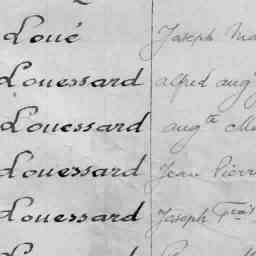 Loué Joseph Ma
Louessard alfred aug
Louessard augte Ma
Louessard Jean Pierr
Louessard Joseph Frçis